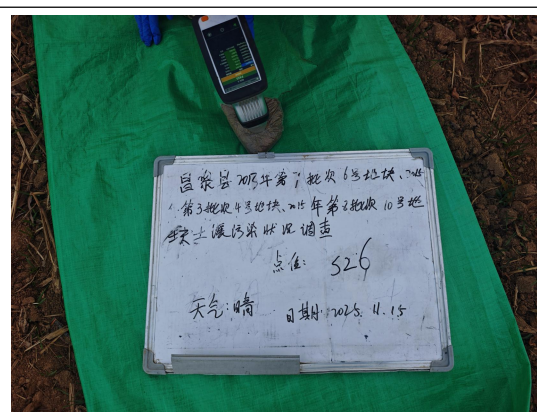 昌乐县2025年第1批次6号地块、2025
年第3批次4号地块、2025年第2批次10号地
块土壤污染状况调查
点位: S26
天气:晴 日期:2025.11.15